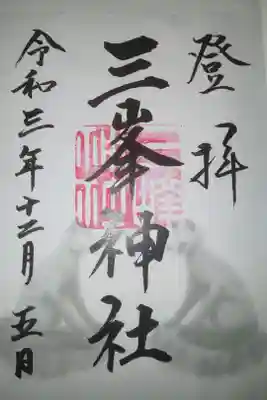 登拝
三峯神社
令和三年十二月五日